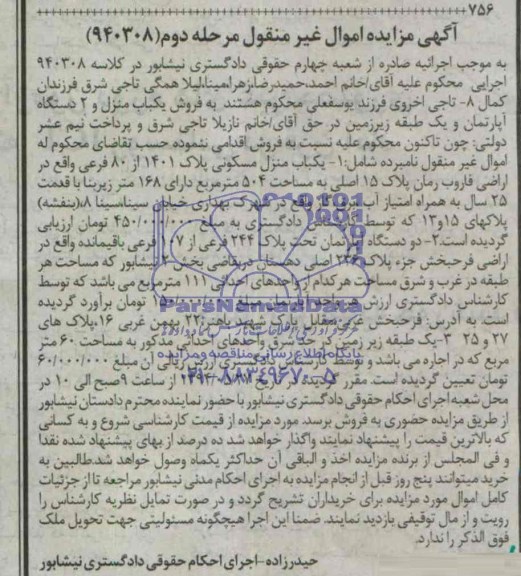 ۷۵۶
آگهی مزایده اموال غیر منقول مرحله دوم(۹۴۰۳۰۸)
به موجب اجرائیه صادره از شعبه چهارم حقوقی دادگستری نیشابور در کلاسه ۹۴۰۳۰۸
اجرایی محکوم علیه آقای/خانم احمد،حمیدرضا،زهرا،مینا،لیلا همگی تاجی شرق فرزندان
کمال ۸- تاجی اخروی فرزند یوسفعلی محکوم هستند به فروش یکباب منزل و ۲ دستگاه
آپارتمان و یک طبقه زیرزمین در حق آقای/خانم نازیلا تاجی شرق و پرداخت نیم عشر
دولتی: چون تاکنون محکوم علیه نسبت به فروش اقدامی ننموده حسب تقاضای محکوم له
اموال غیر منقول نامبرده شامل:۱- یکباب منزل مسکونی پلاک ۱۴۰۱ از ۸۰ فرعی واقع در
اراضی قاروب رمان پلاک ۱۵ اصلی به مساحت ۵۰۴ مترمربع دارای ۱۶۸ متر زیربنا با قدمت
۲۵ سال به همراه امتیاز آب برق گاز واقع در شهرک بهداری خیابان سیناسینا ۸(بنفشه)
پلاکهای ۱۵و۱۳ که توسط کارشناس دادگستری به مبلغ ۴۵۰/۰۰۰/۰۰۰ تومان ارزیابی
گردیده است.۲- دو دستگاه آپارتمان تحت پلاک ۲۴۴ فرعی از ۱۰۷ فرعی باقیمانده واقع در
اراضی فرحبخش جزء پلاک ۲۳۶ اصلی دهستان دربقاضی بخش ۲ نیشابور که مساحت هر
طبقه در غرب و شرق مساحت هرکدام از واحدهای احداثی ۱۱۱ مترمربع می باشد که توسط
کارشناس دادگستری ارزش هر واحد آپارتمان مبلغ تومان برآورد گردیده
است. به آدرس: فرحبخش غربی مقابل پارک غربی ۱۶،پلاک های
۲۷ و ۲۵ ۳-یک طبقه زیر زمین در حد شرق واحدهای احداثی مذکور به مساحت ۶۰ متر
مربع که در اجاره می باشد و توسط کارشناس دادگستری ارزش ریالی آن مبلغ ۶۰/۰۰۰/۰۰۰
تومان تعیین گردیده است. مقرر گردیده در تاریخ از ساعت ۹صبح الی ۱۰ در
محل شعبه اجرای احکام حقوقی دادگستری نیشابور با حضور نماینده محترم دادستان نیشابور
از طریق مزایده حضوری به فروش برسد. مورد مزایده از قیمت کارشناسی شروع و به کسانی
که بالاترین قیمت را پیشنهاد نمایند واگذار خواهد شد ده درصد از بهای پیشنهاد شده نقدا
و فی المجلس از برنده مزایده اخذ و الباقی آن حداکثر یکماه وصول خواهد شد.طالبین به
خرید میتوانند پنج روز قبل از انجام مزایده به اجرای احکام مدنی نیشابور مراجعه تا از جزئیات
کامل اموال مورد مزایده برای خریداران تشریح گردد و در صورت تمایل نظریه کارشناس را
رویت و از مال توقیفی بازدید نمایند. ضمنا این اجرا هیچگونه مسئولیتی جهت تحویل ملک
فوق الذکر را ندارد.
حیدرزاده-اجرای احکام حقوقی دادگستری نیشابور
ParsNamadData
پایگاه اطلاع رسانی مناقصه و مزایده
۰۲۱-۸۸۳۴۹۶۷۰-۵